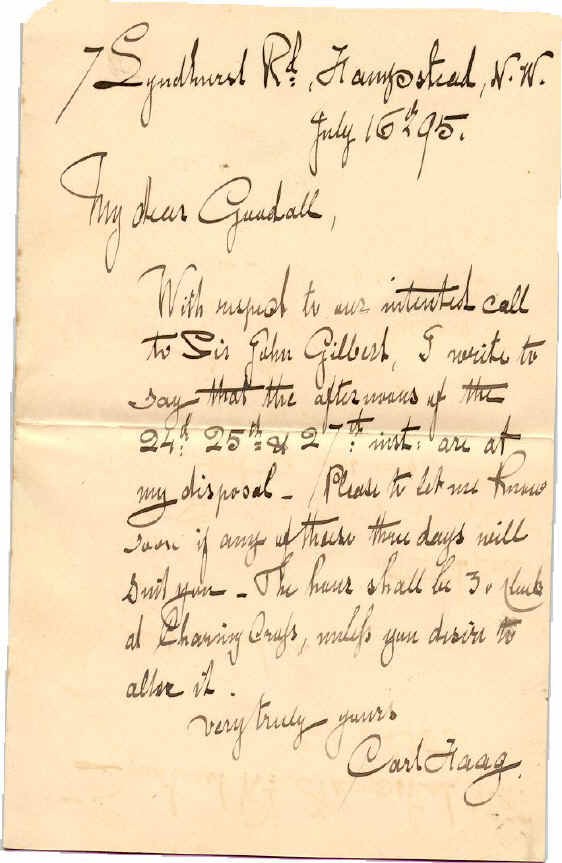 7 Lyndhurst Rd., Hampstead, N.W.
July 16th 95.
My dear Goodall,
With respect to our intended call
to Sir John Gilbert, I write to
say that the afternoons of the
24th. 25th & 27th inst: are at
my disposal - Please to let me know
soon if any of these three days will
suit you - The hour shall be 3 o'clock
at Charing Cross, unless you desire to
alter it.
very truly yours
Carl Haag.